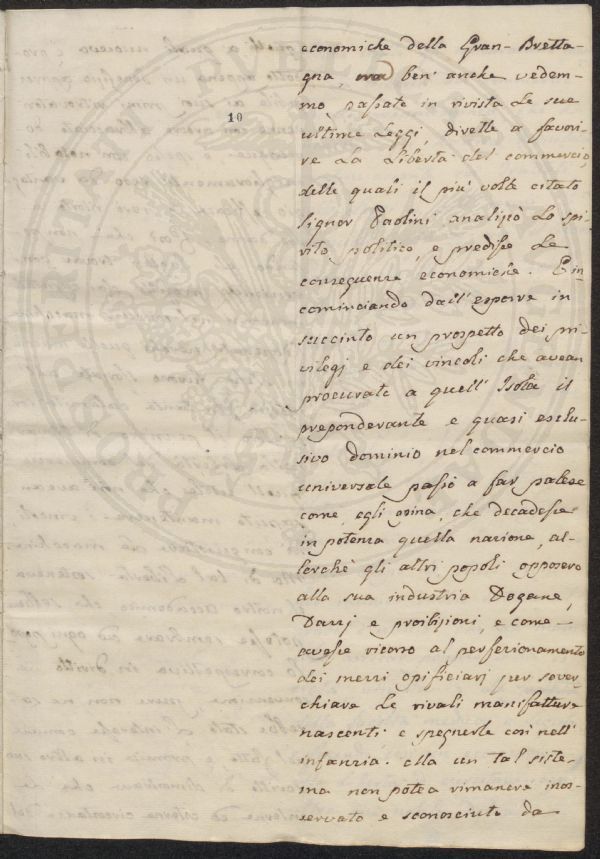 10
economiche della Gran-Bretta-
gna, ma ben' anche vedem-
mo passate in rivista le sue
ultime Leggi, dirette a favori-
re La Libertà del commercio,
delle quali il più volte citato
Signor Paolini analizzò Lo spi-
rito politico, e predisse Le
conseguenze economiche. E in-
cominciando dall' esporre in
succinto un prospetto dei pri-
vilegj e dei vincoli che avean
procurato a quell' Isola il
preponderante e quasi esclu-
sivo dominio nel commercio
universale passò a far palese
come, egli opina, che decadesse
in potenza quella nazione, al-
lorchè gli altri popoli opposero
alla sua industria Dogane,
Dazzj e proibizioni, e come
avesse ricorso al perfezionamento
dei mezzi opificiarj per sover-
chiare le rivali manifatture
nascenti e spegnerle così nell'
infanzia. Ma un tal siste-
ma non potea rimanere inos-
servato e sconosciuto da